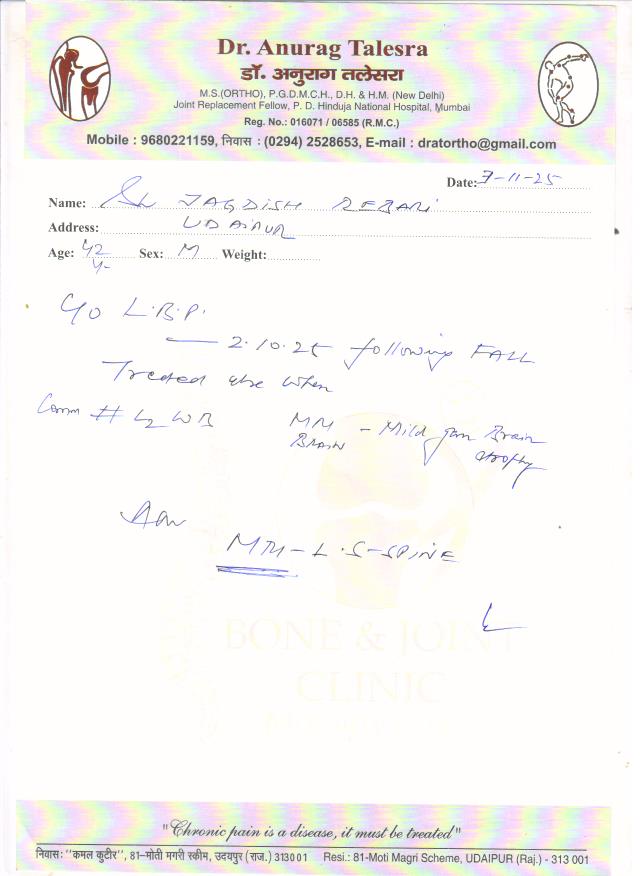 Dr. Anurag Talesra
डॉ. अनुराग तलेसरा
M.S.(ORTHO), P.G.D.M.C.H., D.H. & H.M. (New Delhi)
Joint Replacement Fellow, P. D. Hinduja National Hospital, Mumbai
Reg. No.: 016071 / 06585 (R.M.C.)
Mobile : 9680221159, निवास : (0294) 2528653, E-mail : dratortho@gmail.com
Date: 7-11-25
Name: Sh JAGDISH REBARI
Address: UDAIPUR
Age: 42 y Sex: M Weight:
L.B.P.
2.10.25 following FALL
Treated else when
# L2 MRI - Mild Brain
BRAIN atrophy
Adv
MRI - L.S-SPINE
BONE & JOINT
CLINIC
"Chronic pain is a disease, it must be treated"
निवास: "कमल कुटीर", 81-मोती मगरी स्कीम, उदयपुर (राज.) 313001 Resi.: 81-Moti Magri Scheme, UDAIPUR (Raj.) - 313 001